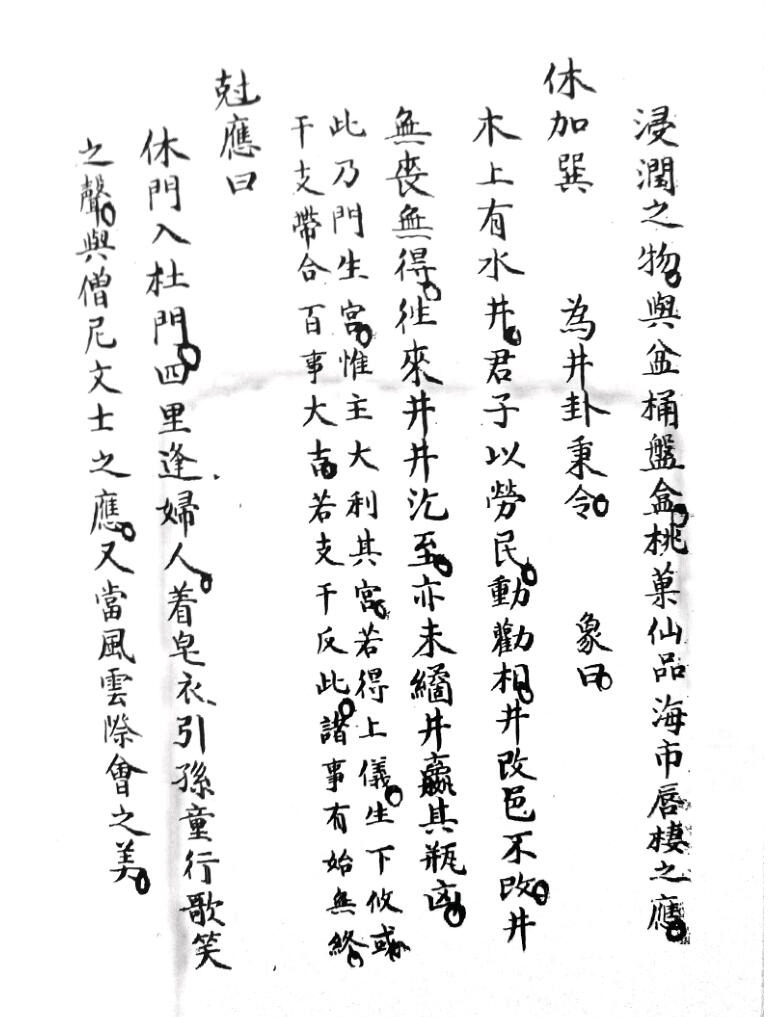 浸潤之物。與盆桶盤盒。桃菓仙品海市唇棲之應。
休加巽　為井卦秉令。　象曰。
木上有水井。君子以勞民。動勸相。井改邑不改。井
無喪無得。徃來井井汔至。亦未繘井羸其瓶凶。
此乃門生宮。惟主大利其宮。若得上儀。生下攸或
干支帶合百事大吉。若支干反此。諸事有始無終。
尅應曰
休門入杜門。四里逢婦人。着皂衣、引孫童行歌笑
之聲。與僧尼文士之應。又當風雲際會之美。